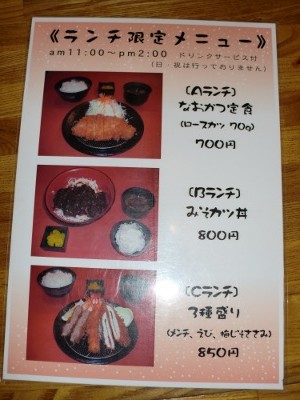 《ランチ限定メニュー》
am11:00～pm2:00 ドリンクサービス付
(日・祝は行っておりません)
〔Aランチ〕
なおかつ定食
(ロースカツ 70g)
700円
〔Bランチ〕
みそカツ丼
800円
〔Cランチ〕
3種盛り
(メンチ、えび、梅じそささみ)
850円